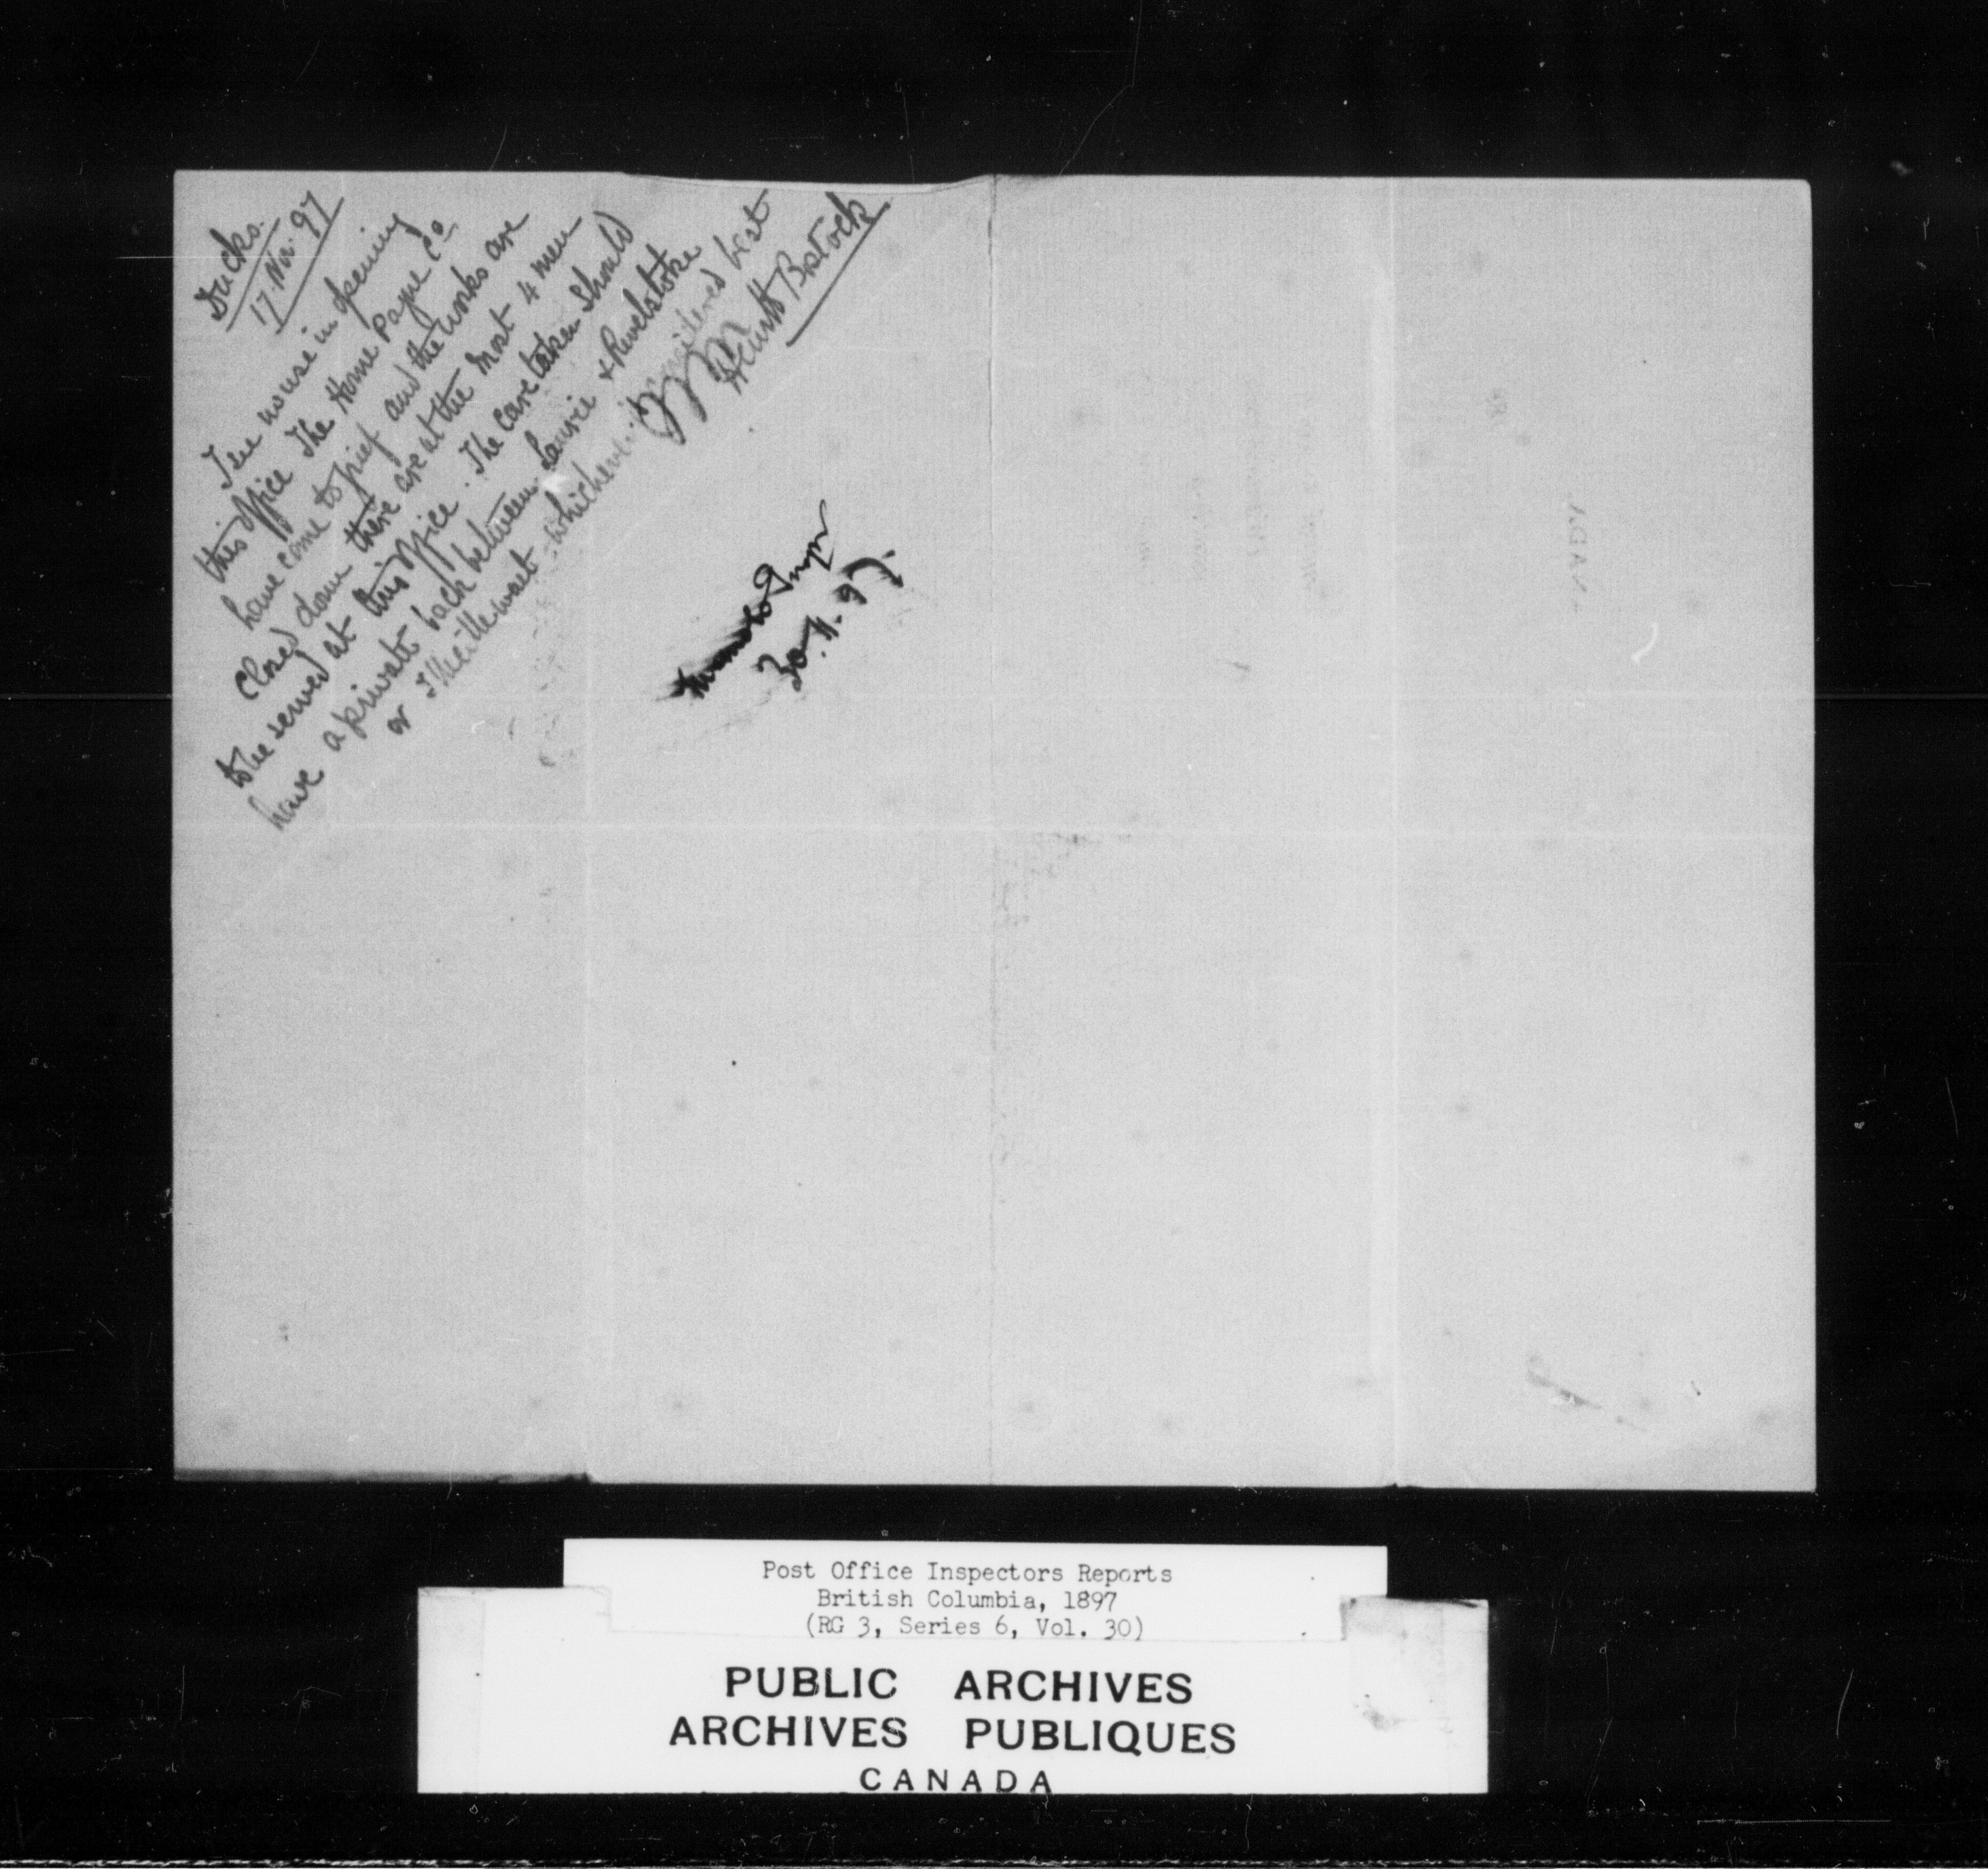 Ducks.
17. Nov. 97
I see no use in opening
this office The Horne Payne Co
have come to grief and the works are
Closed down there are at the most 4 men
to be served at this office. The care taker should
have a private back between Laurie & Revelstoke
or Illecillewaet whichever is considered best
Hewitt Bostock
30.11.97.
Post Office Inspectors Reports
British Columbia, 1897
(RG 3, Series 6, Vol. 30)
PUBLIC ARCHIVES
ARCHIVES PUBLIQUES
CANADA